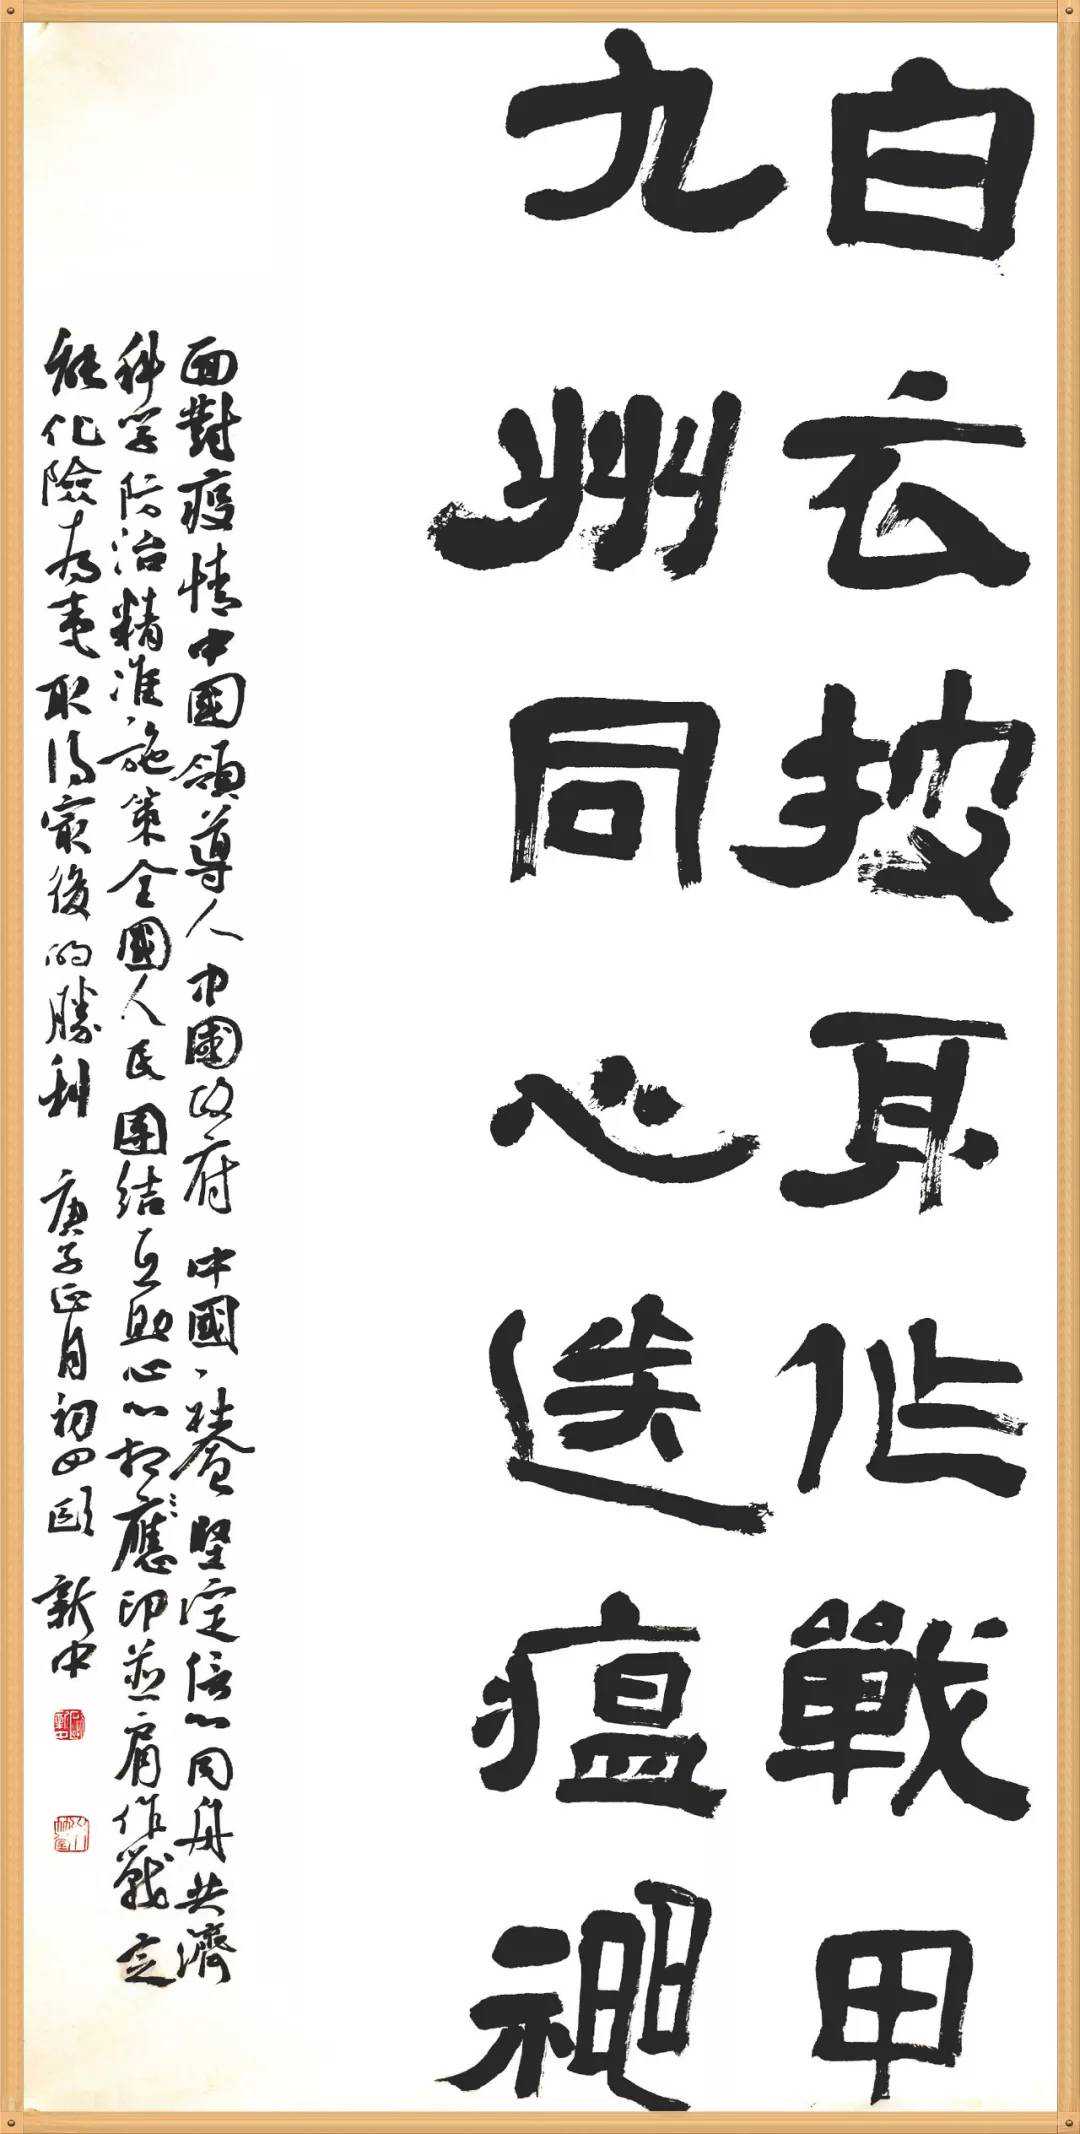 白衣披身作戰甲
九州同心送瘟神
面對疫情中國領導人中國政府中國堅定信心同舟共濟
科學防治精准施策全國人民團結互助心心相應印並肩作戰定
能化險為夷取得最後的勝利 庚子正月初四 新中